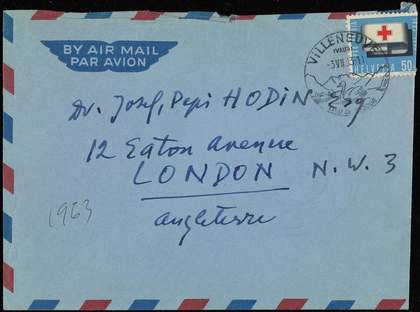 BY AIR MAIL
PAR AVION
VILLENEUVE
HELVETIA 50
Dr. Josef, Pepi HODIN
12 Eaton Avenue
LONDON N.W. 3
Angleterre
1963